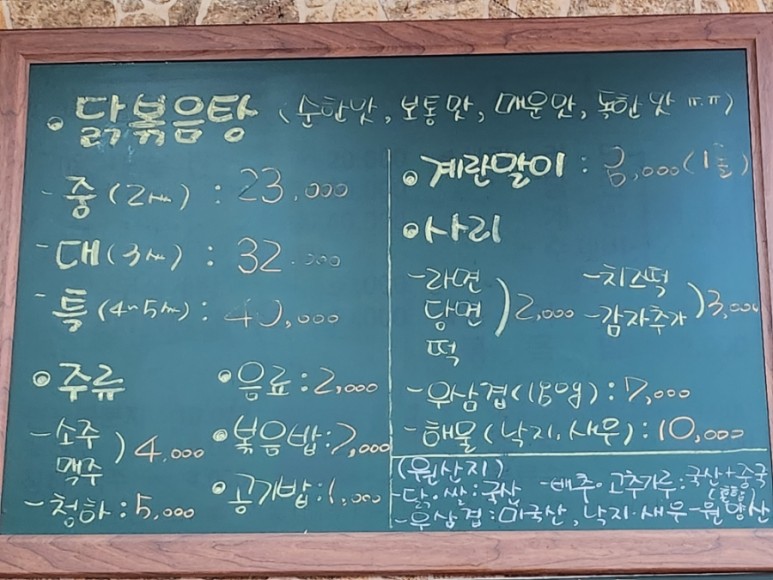 • 닭볶음탕 (순한맛, 보통맛, 매운맛, 독한맛 ㅠ.ㅠ)
- 중(2人) : 23,000
- 대(3人) : 32,000
- 특(4~5人) : 40,000
• 주류
- 소주
맥주 ) 4,000
- 청하 : 5,000
• 음료 : 2,000
• 볶음밥 : 2,000
• 공기밥 : 1,000
• 계란말이 : 8,000
• 사리
- 라면
당면 ) 2,000
떡
- 치즈떡
- 감자추가 ) 3,000
- 우삼겹(180g) : 7,000
- 해물(낙지.새우) : 10,000
(원산지)
- 닭.쌀 : 국산 - 배추.고추가루 : 국산+중국
- 우삼겹 : 미국산, 낙지.새우-원양산